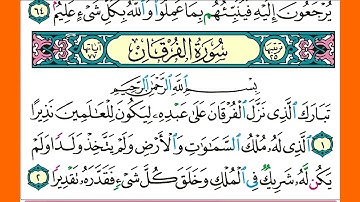 يُرْجَعُونَ إِلَيْهِ فَيُنَبِّئُهُم بِمَا عَمِلُوا۟ وَٱللَّهُ بِكُلِّ شَىْءٍ عَلِيمٌۢ ٦٤
سُورَةُ الْفُرْقَانِ
بِسْمِ ٱللَّهِ ٱلرَّحْمَٰنِ ٱلرَّحِيمِ
تَبَارَكَ ٱلَّذِى نَزَّلَ ٱلْفُرْقَانَ عَلَىٰ عَبْدِهِۦ لِيَكُونَ لِلْعَٰلَمِينَ نَذِيرًا
١ ٱلَّذِى لَهُۥ مُلْكُ ٱلسَّمَٰوَٰتِ وَٱلْأَرْضِ وَلَمْ يَتَّخِذْ وَلَدًا وَلَمْ
يَكُن لَّهُۥ شَرِيكٌ فِى ٱلْمُلْكِ وَخَلَقَ كُلَّ شَىْءٍ فَقَدَّرَهُۥ تَقْدِيرًا ٢